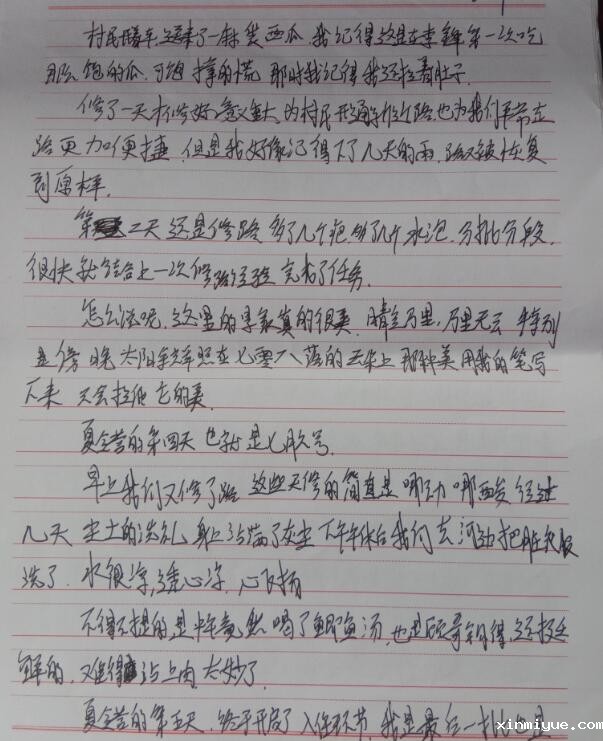 村民骑车送来了一麻袋西瓜,我记得这是在李 第一次吃
那么饱的瓜,可谓撑的慌,那时我记得我还拉着肚子.
修了一天 修好 意义重大,为村民开通了 路,也为我们平常走
路更加便捷,但是我好像记得下了几天的雨,路又被恢复
到原样.
第二天还是修路,多了几个疤,多了几个水泡,分批分段,
很快就结合上一次修路经验完成了任务.
怎么说呢,这里的景象真的很美,晴空万里,万里无云,特别
是傍晚,太阳 照在七零八落的云朵上,那种美用我的笔写
下来,只会拉低它的美.
夏令营的第四天也就是七月九号.
早上我们又修了路,这些天修的简直是哪动哪 ,经过
几天尘土的洗礼,身上沾满了灰尘,下午午休后我们去河边把脏衣服
洗了,水很凉,透心凉,心飞扬
不得不提的,是中午竟然喝了鲫鱼汤,也是 哥钓得,还挺
鲜的,难得沾上肉,太妙了.
夏令营的第五天,终于开启了入住环节,我是最后一批
xinmiyue.com